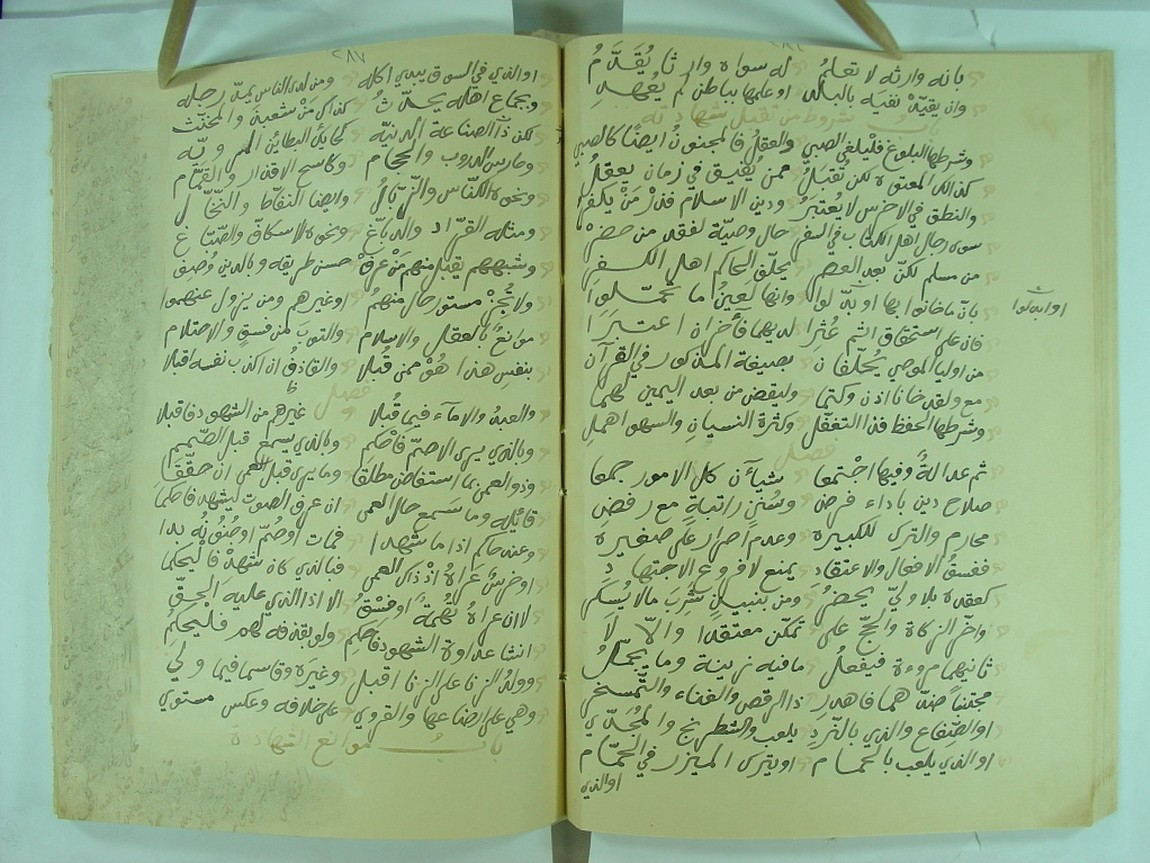 بانه وارثه لا تعلم له سواه وارثا يقدم
وان يقيد نفيه بالبلد او علمها بباطن لم يعهد
باب شروط من تقبل شهادته
وشرطها البلوغ فليلغى الصبي والعقل فالمجنون ايضا كالصبي
كذلك المعتوه لكن تقبل ممن يفيق في زمان يعقل
والنطق في الاخرس لا يعتبر ودين الاسلام فذر من يكفر
سوى رجال اهل الكتاب في السفر حال وصية لفقد من حضر
من مسلم لكن بعد العصر يحلف الحاكم اهل الكفر
بان ما خانوا بها او بدلوا وانها لعين ما تحملوا
او ابدلوا
فان على استحقاق اثم عثرا لديهما فآخران اعتبرا
من اوليا الموصي يحلفان بصيغة المذكور في القرآن
مع ولقد خانا اذن وكتما وليقض من بعد اليمين لهما
وشرطها الحفظ فذا التغفل وكثرة النسيان والسهو اهمل
فصل
ثم عدالة وفيها اجتمعا شيآن كل الامور جمعا
صلاح دين باداء فرض وسنن راتبة مع رفض
محارم والترك للكبيرة وعدم اصرار على صغيرة
ففسق الافعال والاعتقاد يمنع لا فروع الاجتهاد
كعقده بلا ولي يحضر ومن بنبيذ شرب مالا يسكر
واخر الزكاة والحج على تمكن معتقدا والا لا
ثانيهما مروءة فيفعل ما فيه زينة وما يجمل
مجتنبا ضدهما فاهدر ذا الرقص والغناء والتمسخر
او الصفاع والذي بالنرد يلعب والشطرنج والمجدي
او الذي يلعب بالحمام او يترك الميزر في الحمام
او الذي
٢٨٧
او الذي في السوق يبدي اكله ومن لدى الناس يمد رجله
وبجماع اهله يحدث كذاك من شعبذ والمخنث
لكن ذا الصناعة الدنيه كحائك البطائن المرويه
وحارس الدروب والحجام وكاسح الاقذار والقمام
ونحوه الكناس والزبال وايضا النفاط والنخال
ومثله القراد والدباغ ونحوه الاسكاف والصباغ
وشبههم يقبل منهم من عرف حسن طريقه وبالدين وصف
ولا تجز مستور حال منهم او غيرهم ومن يزول عنهموا
مانع بالعقل والاسلام والتوب لمن فسق والاحتلام
بنفس هذا هو ممن قبلا والقاذف ان اكذب نفسه اقبلا
فصل
والعبد والامآء فيما قبلا غيرهم من الشهود فاقبلا
وبالذي يرى الاصم فاحكم وبالذي يسمع قبل الصمم
وذو العمى بما استفاض مطلقا وما يرى قبل العمى ان حققا
قائله وما سمع حال العمى ان عرف الصوت ليشهد فاحكما
وعند حاكم اذا ما شهدا فمات او صم او جنونه بدا
او خرس عراه اذ ذاك العمى فبالذي كان شهد فاليحكما
لا ان عراه تهمة او فسق الا اذا الذي عليه الحق
انشا عداوة الشهود فاحكم ولو بقذفه لهم فليحكم
وولد الزنا على الزنا اقبل وغيره وقاسما فيما ولي
وهي على ارضاعها والقروي على خلافه وعكس مستوي
باب موانع الشهادة